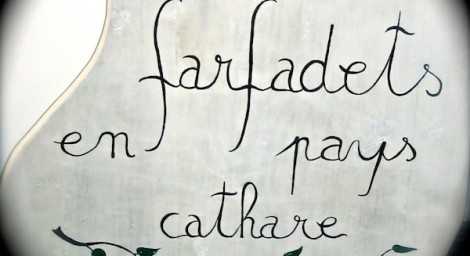 farfadets
en pays
cathare